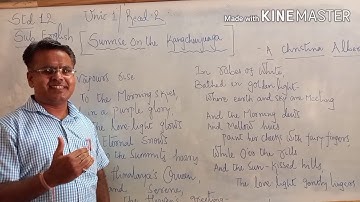 Made with KINEMASTER
Std 12
Unit 1/Read-2
Sub English
Sunrise On the Kangchenjunga
- A Christina Albers
Vapours Rise
To the Morning skies
in a purple glory
love light glows
Eternal Snows
the Summits hoary
Himalayas
and Serene
In Robes of White
Bathed in golden light
Where earth and sky are Meeting
And the Morning dews
and Mellow hues
Paint cheeks with fairy fingers
While O'er the
And the Sun-Kissed hills
The Love light gently lingers